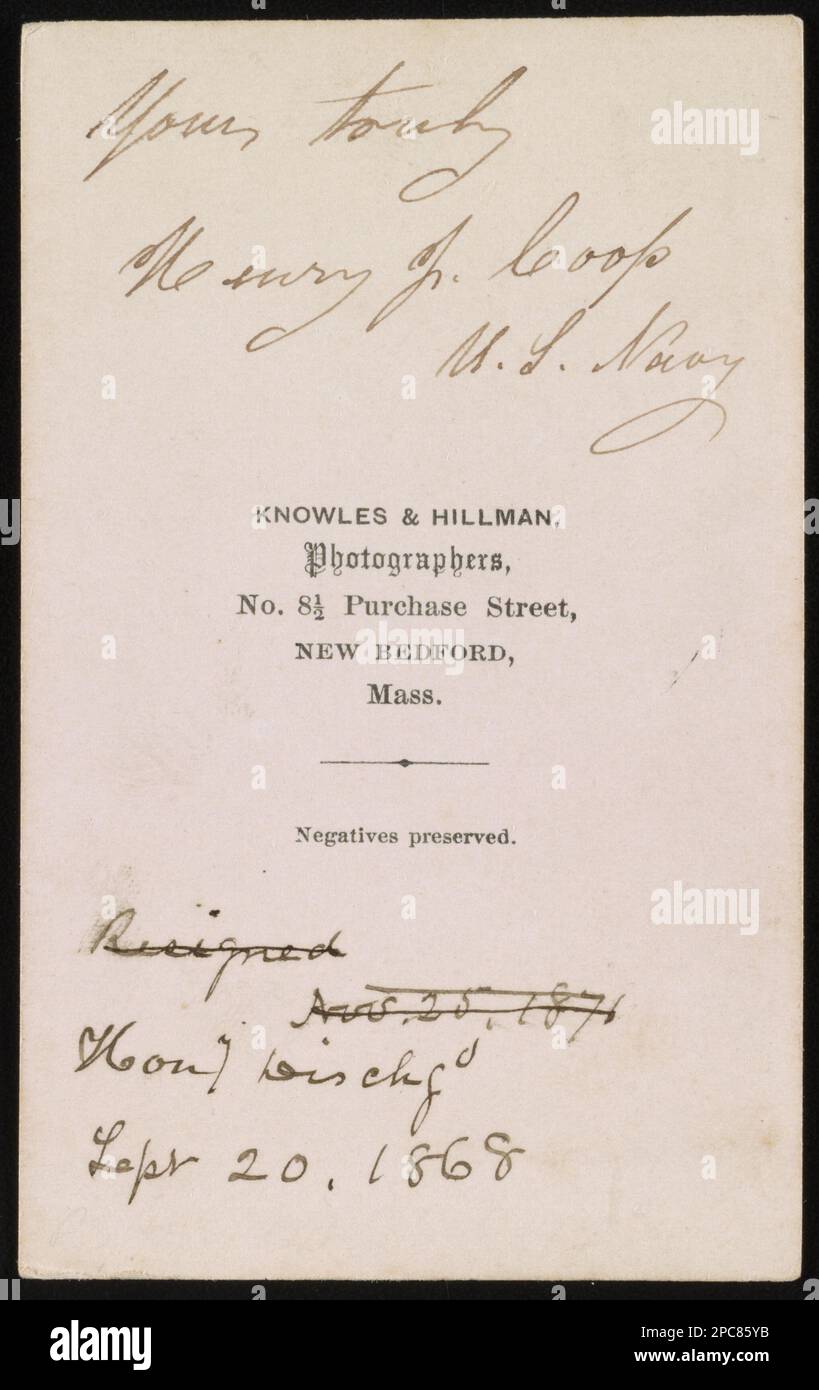 Yours truly
Henry J. Coop
U. S. Navy
KNOWLES & HILLMAN,
Photographers,
No. 8½ Purchase Street,
NEW BEDFORD,
Mass.
Negatives preserved.
Resigned
Nov. 25, 1871
Hony Dischgd
Sept 20, 1868
alamy
alamy
alamy
alamy
Image ID: 2PC85YB
www.alamy.com